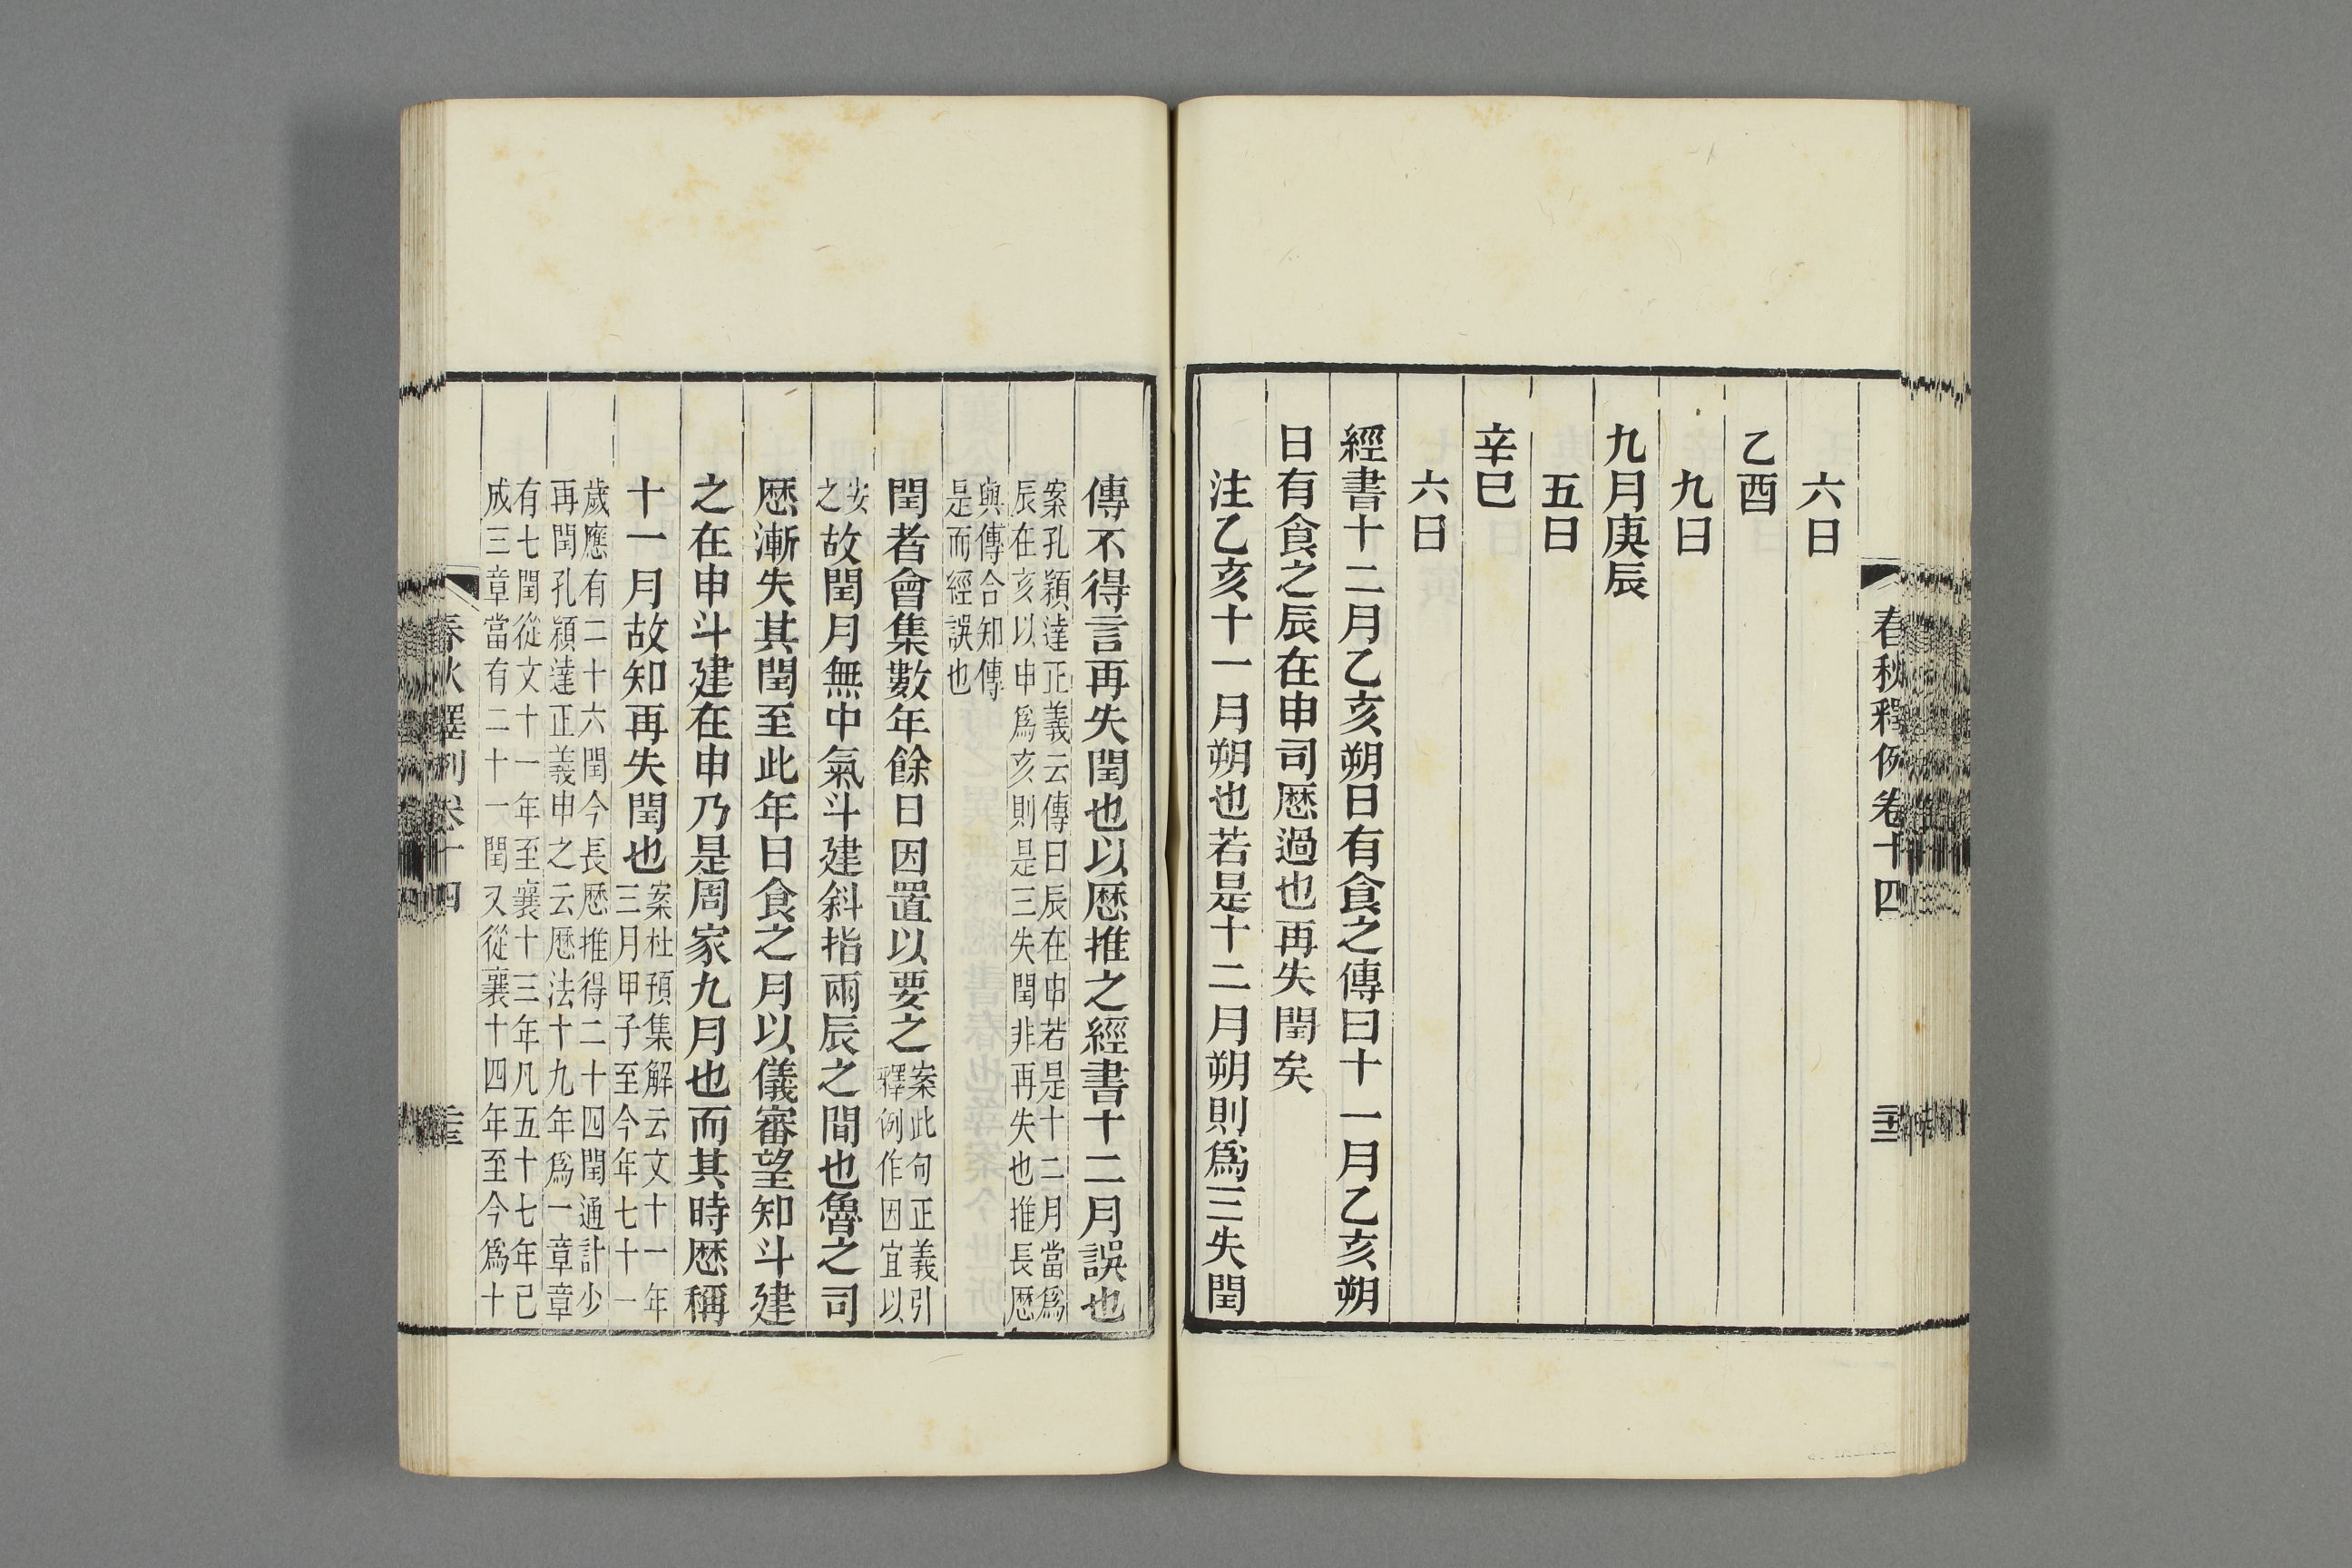 春秋釋例卷十四
六日
乙酉
九日
九月庚辰
五日
辛巳
六日
經書十二月乙亥朔日有食之傳曰十一月乙亥朔
日有食之辰在申司厯過也再失閏矣
注乙亥十一月朔也若是十二月朔則爲三失閏
傳不得言再失閏也以厯推之經書十二月誤也
案孔穎達正義云傳曰辰在申若是十二月當爲
辰在亥以申爲亥則是三失閏非再失也推長厯
與傳合知傳
是而經誤也
閏者會集數年餘日因置以要之
案此句正義引
釋例作因宜以
安
之
故閏月無中氣斗建斜指兩辰之間也魯之司
厯漸失其閏至此年日食之月以儀審望知斗建
之在申斗建在申乃是周家九月也而其時厯稱
十一月故知再失閏也
案杜預集解云文十一年
三月甲子至今年七十一
歲應有二十六閏今長厯推得二十四閏通計少
再閏孔穎達正義申之云厯法十九年爲一章章
有七閏從文十一年至襄十三年凡五十七年已
成三章當有二十一閏又從襄十四年至今爲十
春秋釋例卷十四